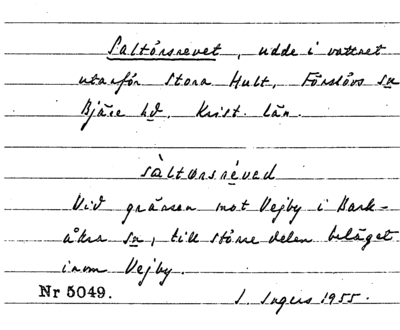 Saltörsrevet, udde i vattnet
utanför Stora Hult, Förslövs sn
Bjäre hd. Krist. län.
sàltørsréved
Vid gränsen mot Vejby i Bark-
åkra sn, till större delen beläget
inom Vejby.
Nr 5049.
S. Ingers 1955.